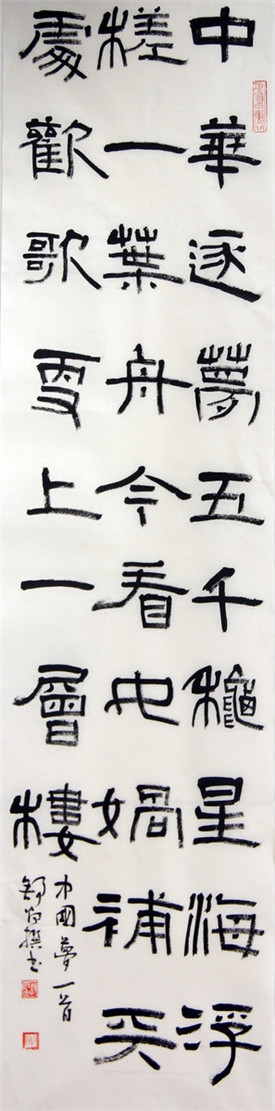 中華逐夢五千穐星海浮
槎一葉舟今看女媧補天
處歡歌更上一層樓
中國夢一首
撰书